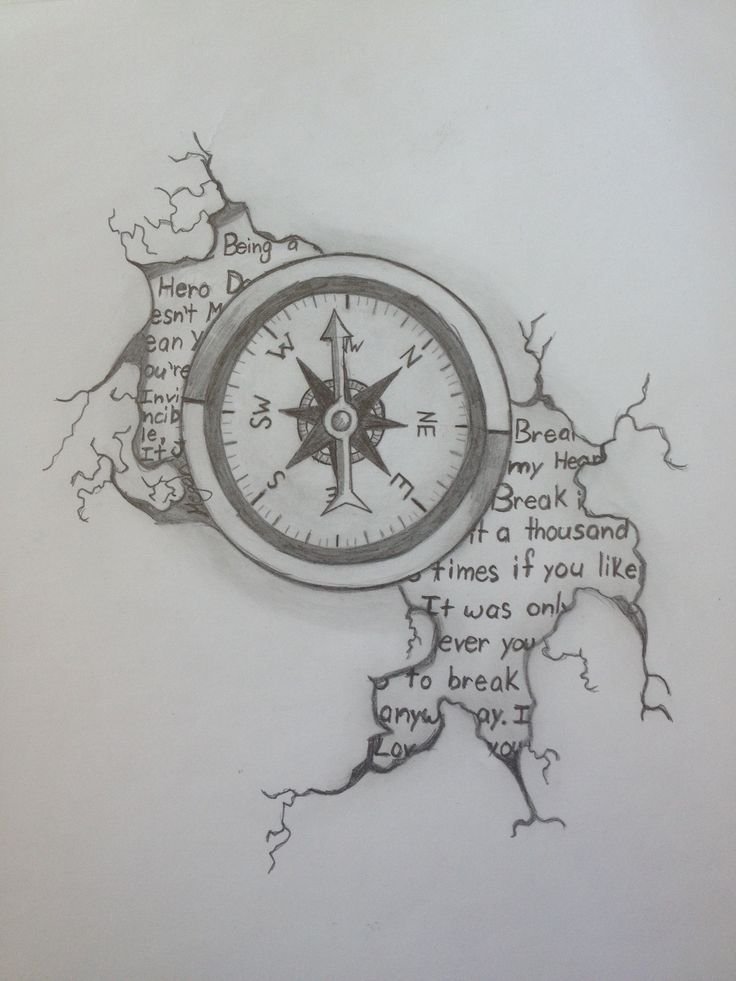 Being a
Hero Do
esn't M
ean Y
ou're
Invi
ncib
le,
It J
W
W
N
SW
NE
S
E
E
Break
my Hear
Break i
it a thousand
times if you like
It was only
ever you
s to break
anyw ay. I
Lov you